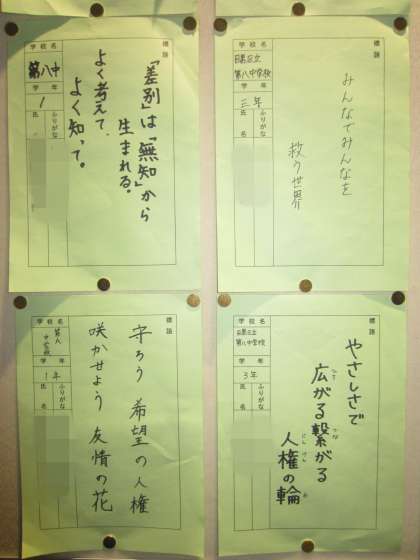 標語
「差別」は「無知」から
生まれる。
よく考えて、
よく知って。
学校名
第八中
学年
1
ふりがな
氏名
標語
みんなでみんなを
救う世界
学校名
目黒区立
第八中学校
学年
三年
ふりがな
氏名
標語
守ろう 希望の人権
咲かせよう 友情の花
学校名
第八
中学校
学年
1年
ふりがな
氏名
標語
やさしさで
広がる繋がる
人権の輪
学校名
目黒区立
第八中学校
学年
3年
ふりがな
氏名